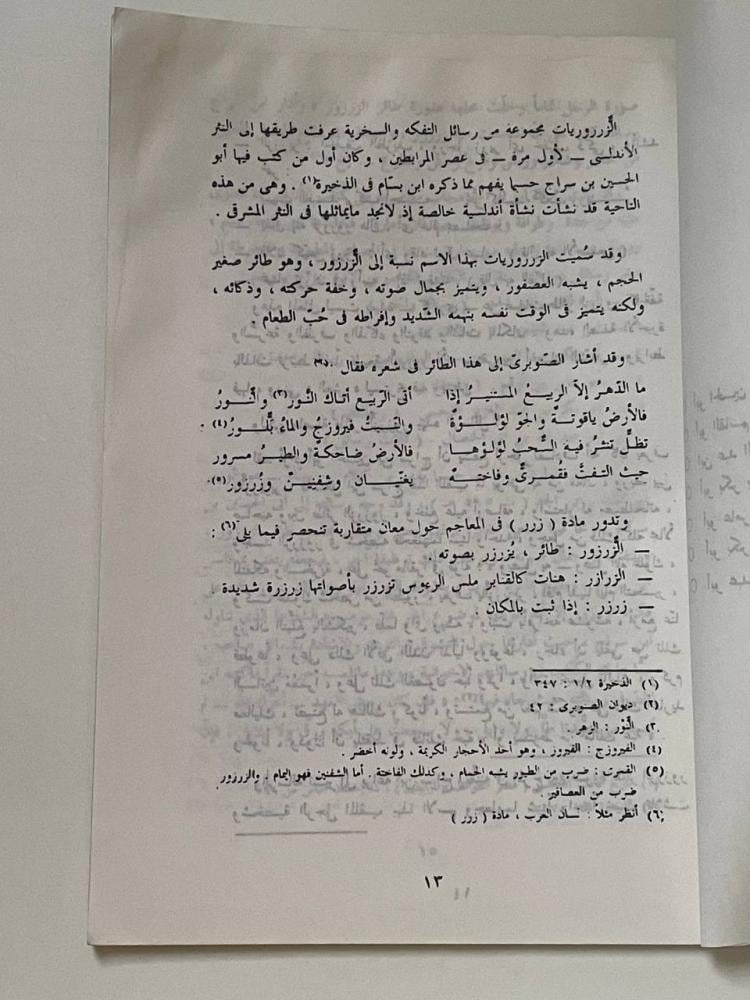 الزرزوريات مجموعة من رسائل التفكه والسخرية عرفت طريقها إلى النثر
الأندلسى — لأول مرة — فى عصر المرابطين ، وكان أول من كتب فيها أبو
الحسين بن سراج حسبما يفهم مما ذكره ابن بسّام فى الذخيرة(١) . وهى من هذه
الناحية قد نشأت نشأة أندلسية خالصة إذ لانجد مايماثلها فى النثر المشرقى .
وقد سُميت الزرزوريات بهذا الاسم نسبة إلى الزّرزور ، وهو طائر صغير
الحجم ، يشبه العصفور ، ويتميز بجمال صوته ، وخفة حركته ، وذكائه ،
ولكنه يتميز فى الوقت نفسه بنهمه الشّديد وإفراطه فى حُبّ الطعام .
وقد أشار الصّنوبرىّ إلى هذا الطائر فى شعره فقال
ما الدّهرُ إلاّ الربيعُ المستنيرُ إذا أتى الرّبيع أتاك النَّور(٣) والنُّورُ
فالأرضُ ياقوتةٌ والجوّ لؤلؤةٌ والنّبتُ فيروزجٌ والماءُ بلّورُ(٤) .
تظلّ تنثرُ فيه السُّحبُ لؤلؤها فالأرضُ ضاحكةٌ والطيرُ مسرور
حيث التفتَّ فقُمرىٌّ وفاختةٌ يغنّيان وشِفنِينٌ وزُرزور(٥)
وتدور مادة ( زرر ) فى المعاجم حول معان متقاربة تنحصر فيما يلى(٦) :
— الزّرزور : طائر ، يُزرزر بصوته .
— الزرازر : هنات كالقنابر ملس الرءوس تزرزر بأصواتها زرزرة شديدة
— زرزر : إذا ثبت بالمكان .
(١) الذخيرة ١/٢ : ٣٤٧
(٢) ديوان الصنوبرى : ٤٢
(٣) النَّوْر : الزهر .
(٤) الفيروزج : الفيروز ، وهو أحد الأحجار الكريمة ، ولونه أخضر .
(٥) القمرى : ضرب من الطيور يشبه الحمام ، وكذلك الفاختة . أما الشفنين فهو اليمام . والزرزور
ضرب من العصافير .
(٦) أنظر مثلاً : لسان العرب ، مادة ( زرر )
١٣